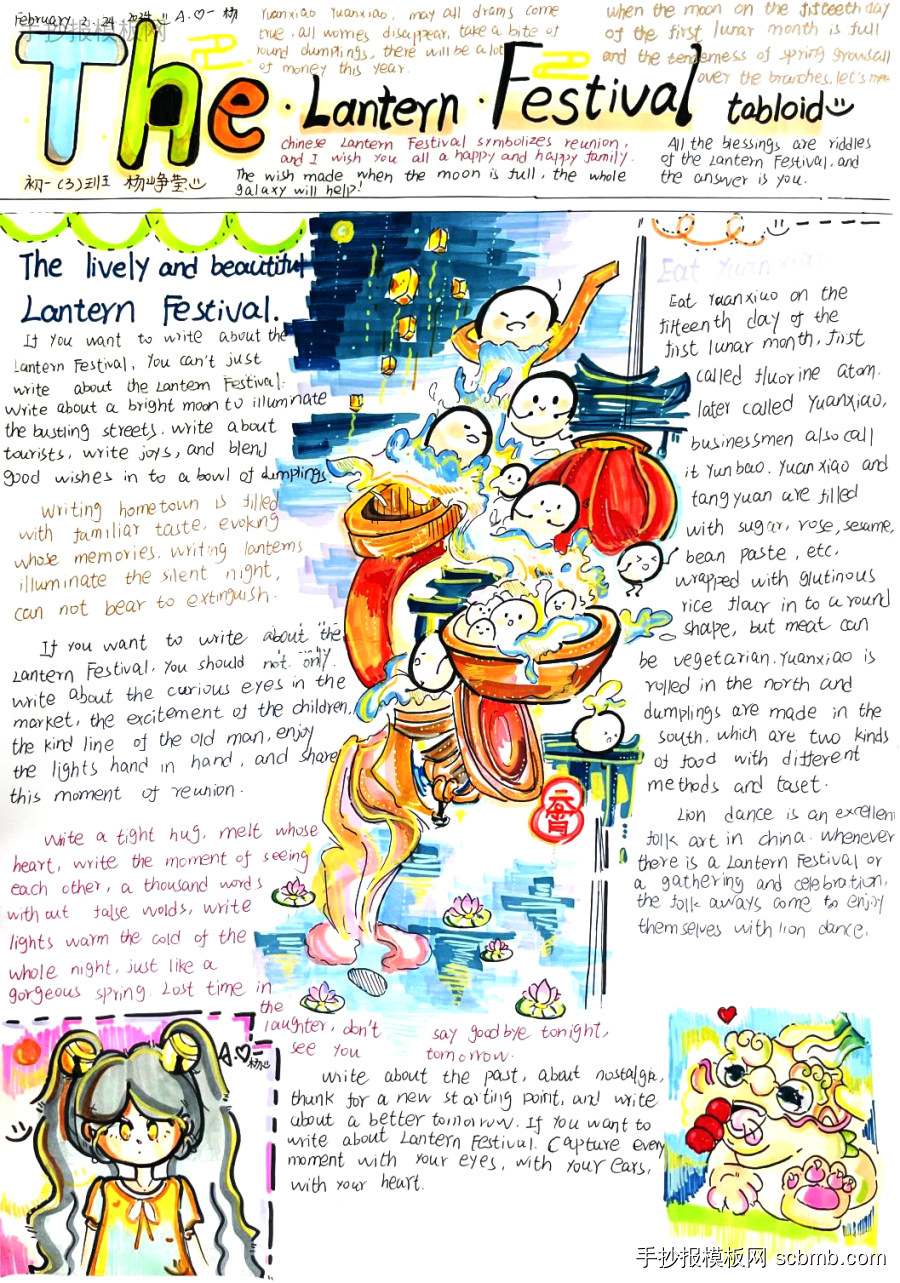 February 2.24 2024 !! A.♡一 杨
手抄报模板网
Yuanxiao Yuanxiao, may all drams come
true, all worries disappear, take a bite of
round dumplings, there will be a lot
of money this year.
when the moon on the fifteeth day
of the first lunar month is full
and the tenderness of spring
over the branches, let's
The · Lantern · Festival tabloid
初一(3)班 杨峥莹
chinese Lantern Festival symbolizes reunion,
and I wish you all a happy and happy family.
The wish made when the moon is full, the whole
galaxy will help!
All the blessings are riddles
of the Lantern Festival, and
the answer is you.
The lively and beautiful
Lantern Festival.
If you want to write about the
Lantern Festival, You can't just
write about the Lantern Festival:
write about a bright moon to illuminate
the bustling streets. write about
tourists, write joys, and blend
good wishes in to a bowl of dumplings.
Writing hometown is filled
with familiar taste, evoking
whose memories. writing lanterns
illuminate the silent night,
can not bear to extinguish.
If you want to write about the
Lantern Festival, You should not only.
write about the curious eyes in the
market, the excitement of the children,
the kind line of the old man, enjoy
the lights hand in hand, and share
this moment of reunion.
Write a tight hug, melt whose
heart, write the moment of seeing
each other, a thousand words
with out false wolds, write
lights warm the cold of the
whole night, just like a
gorgeous spring. Lost time in
the
laughter, don't say goodbye tonight,
see you tomorrow.
write about the past, about nostalgia,
thunk for a new starting point, and write
about a better tomorrow. If You want to
write about Lantern Festival. Capture every
moment with your eyes, with your ears,
with your heart.
Eat Yuanxiao
Eat Yuanxiao on the
fifteenth day of the
first lunar month, first
called fluorine atom.
later called Yuanxiao,
businessmen also call
it Yunbao. Yuanxiao and
tangyuan are filled
with sugar, rose, sesame,
bean paste, etc,
wrapped with glutinous
rice flour in to a round
shape, but meat can
be vegetarian. Yuanxiao is
rolled in the north and
dumplings are made in the
south, which are two kinds
of food with different
methods and taset.
Lion dance is an excellent
folk art in china. Whenever
there is a Lantern Festival or
a gathering and celebration,
the folk aways come to enjoy
themselves with lion dance.
元宵
A.♡一
杨
手抄报模板网 scbmb.com